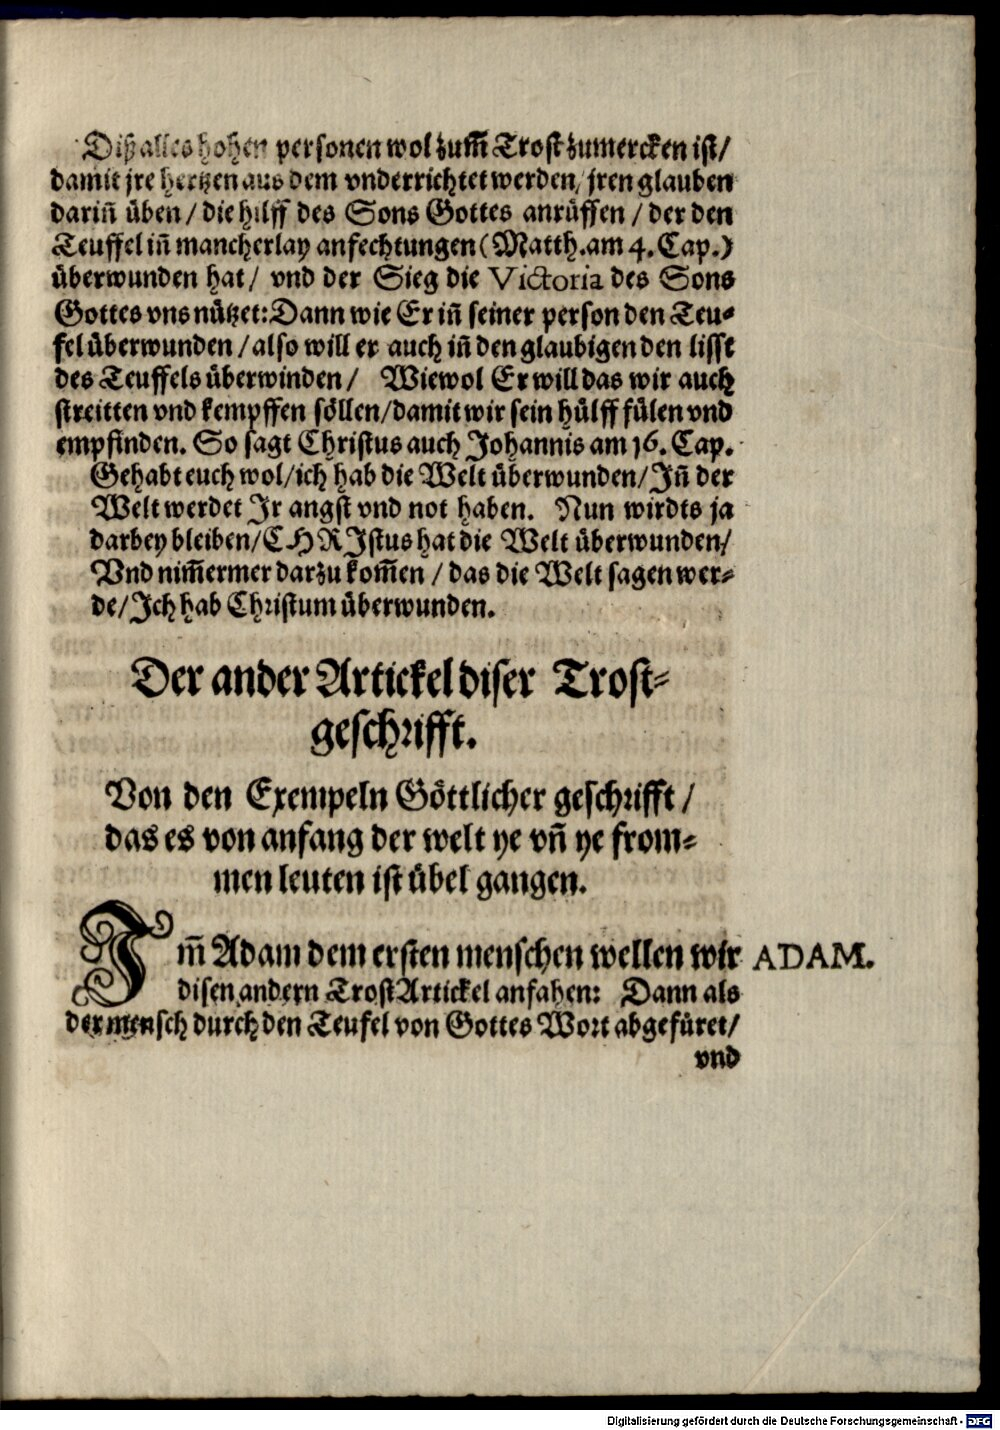 Diß alles hohen personen wol zum̄ Trost zumercken ist/
damit jre hertzen aus dem vnderrichtet werden/ jren glauben
dariñ üben / die hilff des Sons Gottes anrüffen / der den
Teuffel iñ mancherlay anfechtungen (Matth. am 4. Cap.)
überwunden hat/ vnd der Sieg die Victoria des Sons
Gottes vns nützet: Dann wie Er iñ seiner person den Teu-
fel überwunden / also will er auch iñ den glaubigen den lisst
des Teuffels überwinden / Wiewol Er will das wir auch
streitten vnd kempffen söllen/damit wir sein hülff fülen vnd
empfinden. So sagt Christus auch Johannis am 16. Cap.
Gehabt euch wol/ich hab die Welt überwunden/Jñ der
Welt werdet Jr angst vnd not haben. Nun wirdts ja
darbey bleiben/CHRJstus hat die Welt überwunden/
Vnd nim̄ermer darzu kom̄en / das die Welt sagen wer-
de/Jch hab Christum überwunden.
Der ander Artickel diser Trost-
geschrifft.
Von den Exempeln Göttlicher geschrifft /
das es von anfang der welt ye vñ ye from-
men leuten ist übel gangen.
Jm̄ Adam dem ersten menschen wellen wir ADAM.
disen andern Trost Artickel anfahen: Dann als
der mensch durch den Teufel von Gottes Wort abgefüret/
vnd
Digitalisierung gefördert durch die Deutsche Forschungsgemeinschaft - DFG